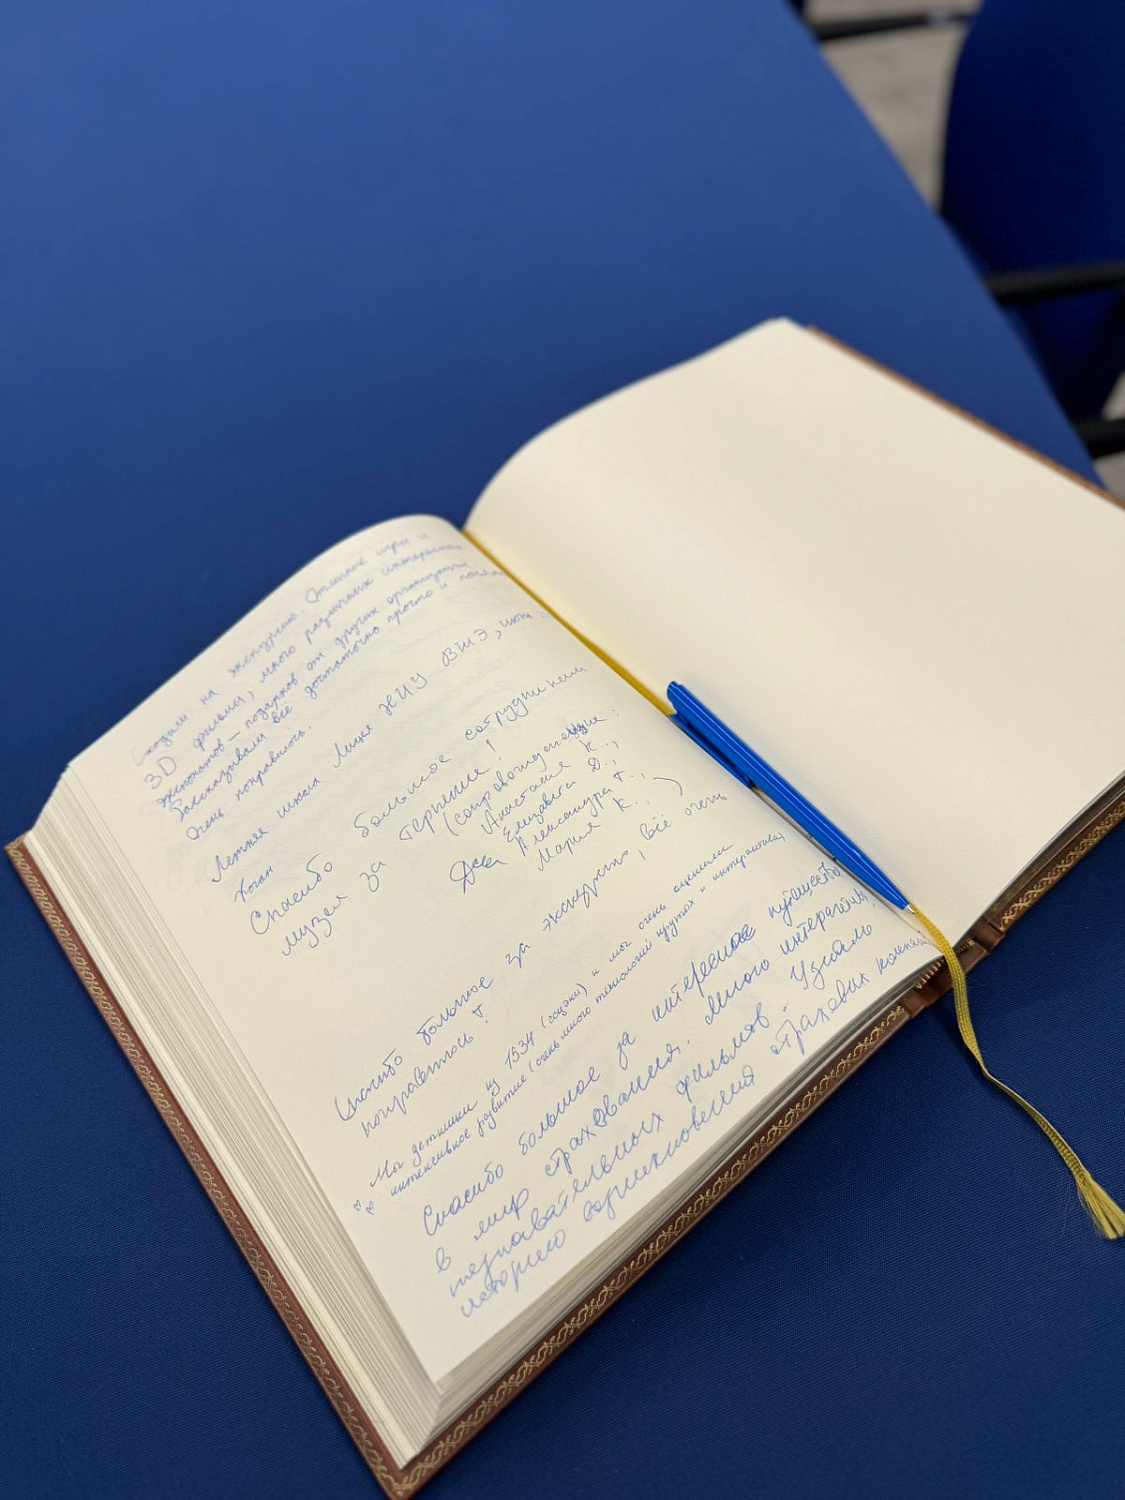 Сходили на экскурсию. Отличные игры и
3D фильмы, много различных интересных
экспонатов – подарков от других организаций.
Рассказывали всё достаточно просто и
Очень понравилось.
Летняя школа Лицея НИУ ВШЭ, июнь
Спасибо большое сотрудникам
музея за терпение!
(сопровождающие:
Анастасия К.,
Елизавета Д.,
Александра Г.,
Мария К.,)
Спасибо большое за экскурсию, всё очень
понравилось!
Мы детишки из 1534 (соцэки) и мы очень оценили
интенсивное развитие (очень много технологий крутых и интерактива)
Спасибо большое за интересное
в мир страхования. Много
познавательных фильмов. Узнали
историю возникновения страховых